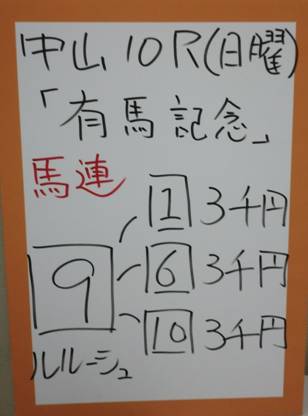 中山10R(日曜)
「有馬記念」
馬連
1 3千円
9 6 3千円
10 3千円
ルルーシュ